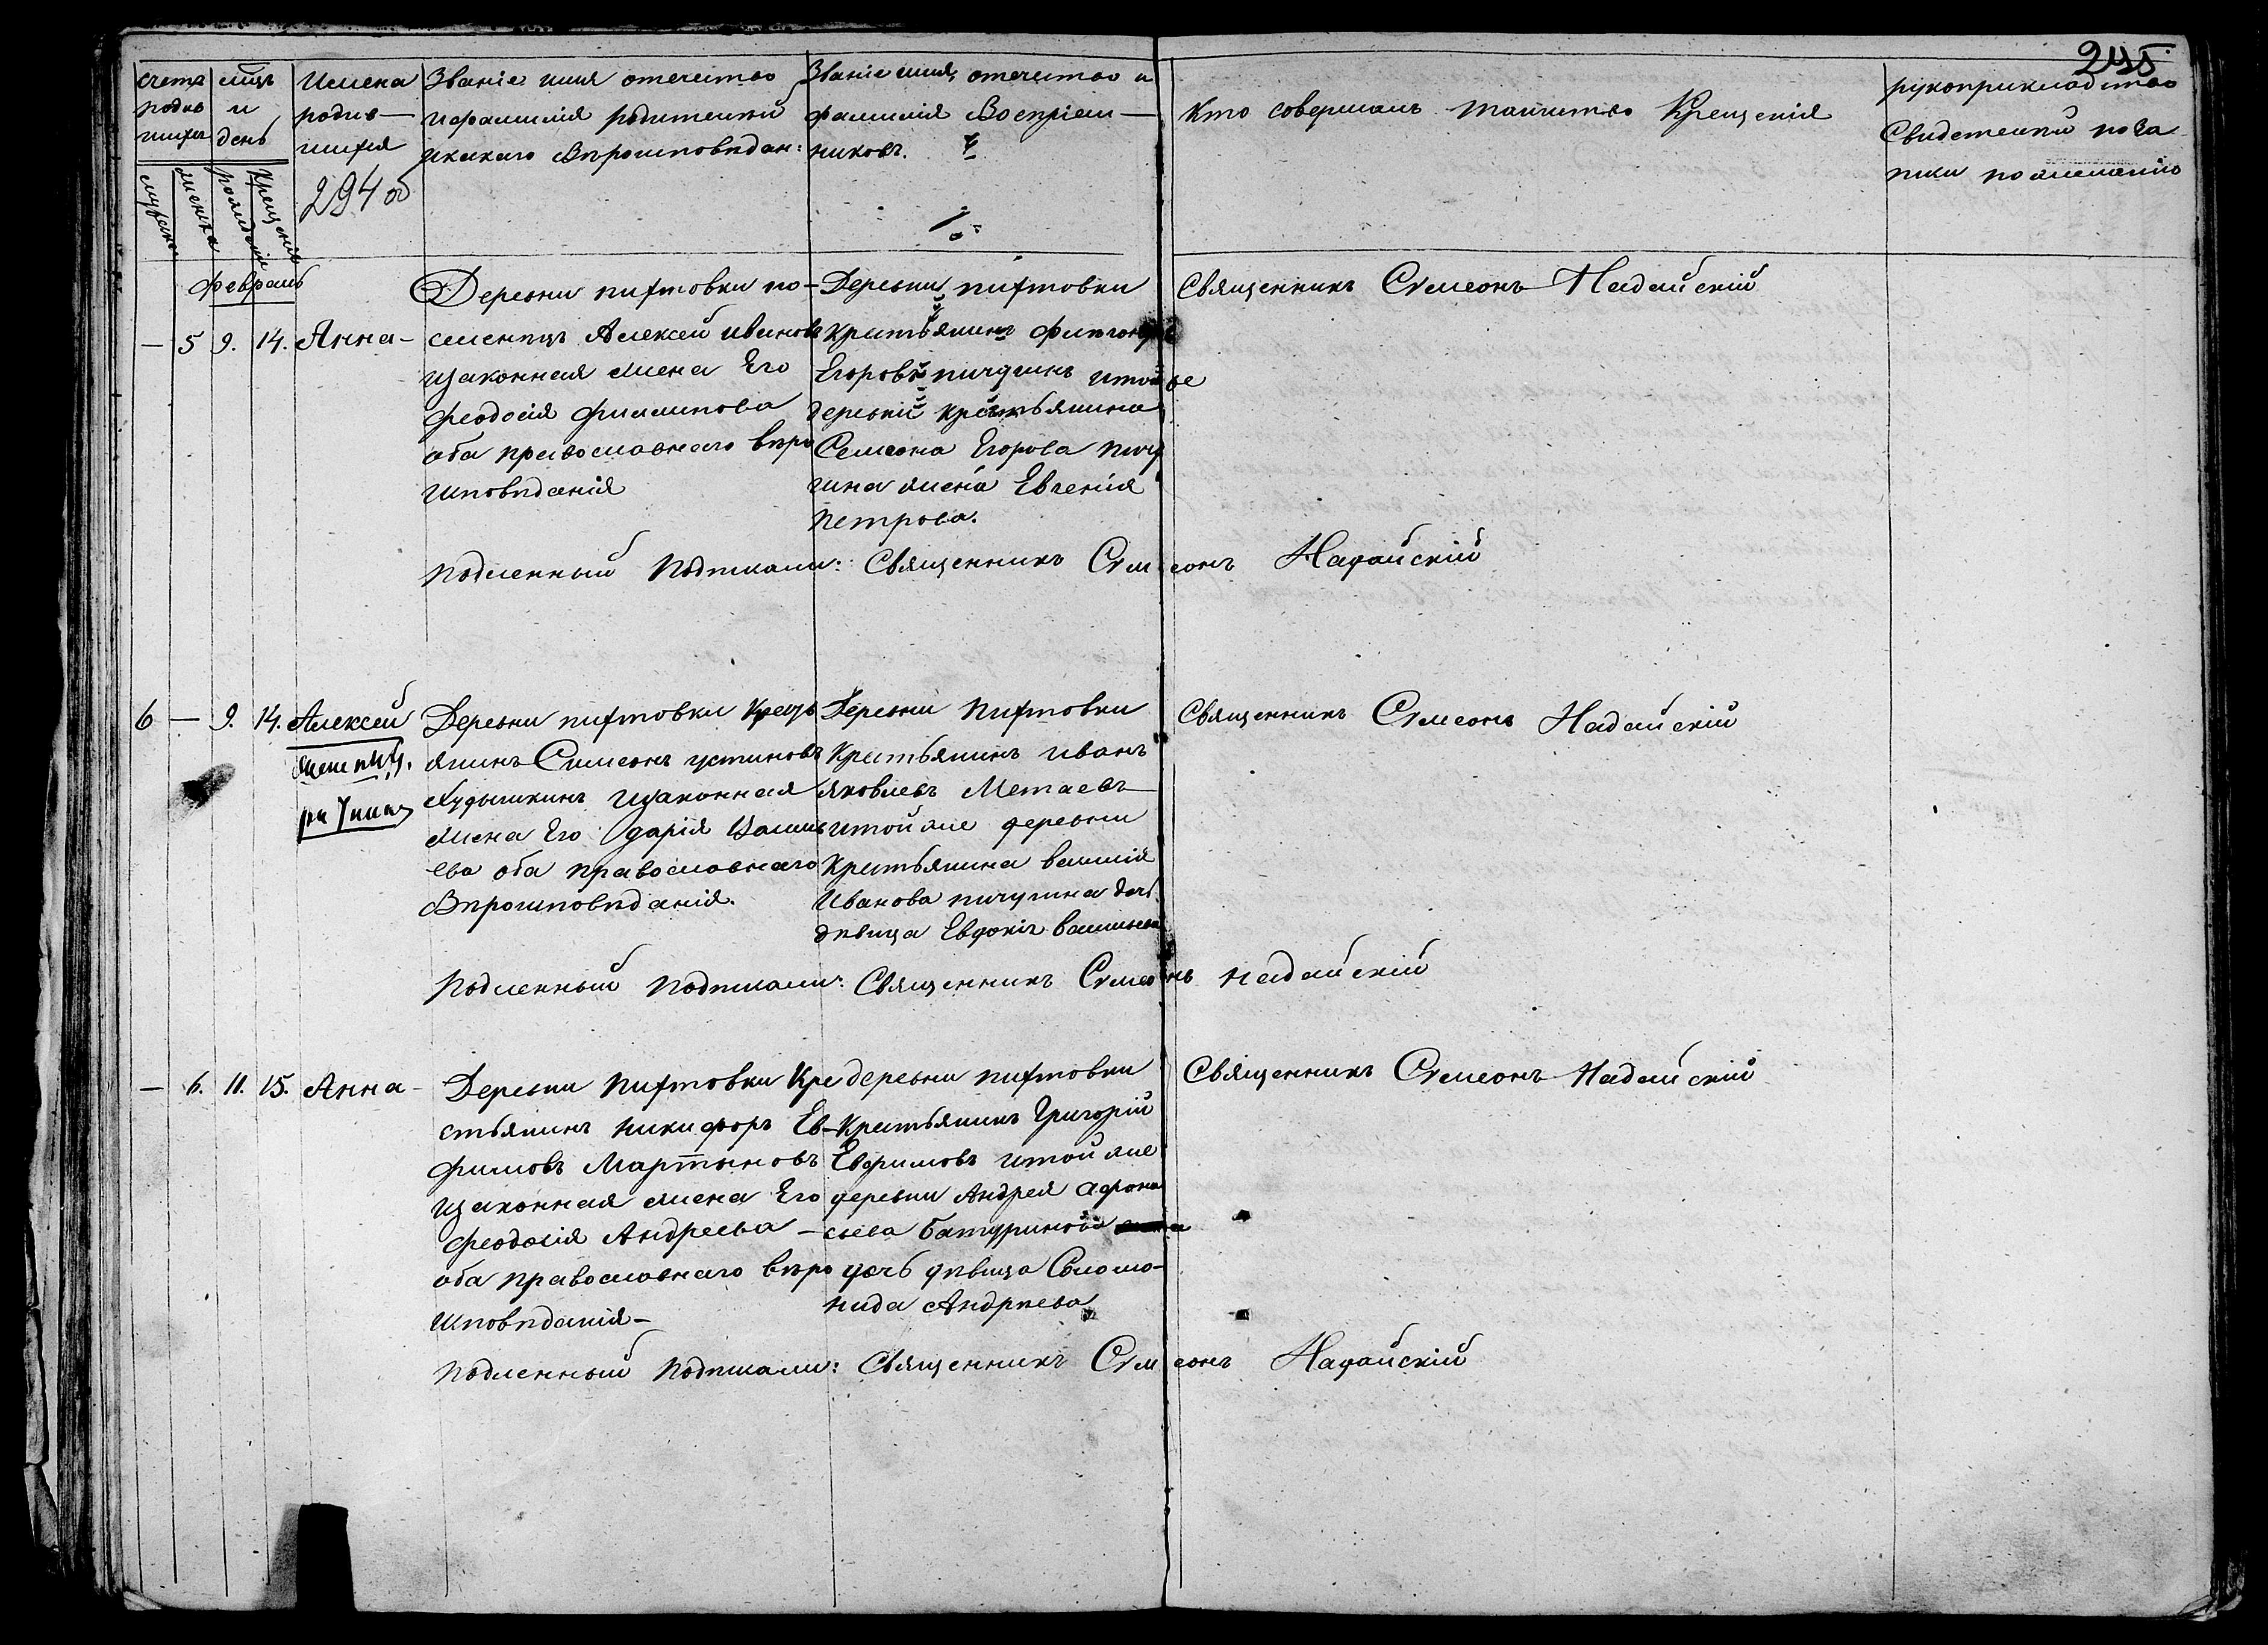 245
счетъ родив шихся
мцъ и день
Имена родив— шихся
294 об
Званіе имя отечество
ифамилія родителей
икакаго Вѣроисповѣдан:
Званіе имя, отечество и
фамилія Воспріем—
никовъ.
Кто совершалъ таинство Крещенія
рукоприкладство
Свидетелей поза
писи пожеланію
мужеска
женска
рожденія
Крещенія
февраль
— 5 9. 14. Анна—
Деревни пихтовки по—
селенецъ Алексей Иванов
изаконная жена Его
феодосія филипова
оба православнаго вѣро
исповѣданія
Деревни пихтовки
Крестьянинъ
Егоровъ пичугинъ итойже
деревни крестьянина
Семеона Егорова пичу
гина жена Евгенія
Петрова.
Священникъ Симеонъ Надайскій
подленный подписали: Священникъ Симеонъ Надайскій
6 — 9. 14. Алексей
Деревни пихтовки Крест
янинъ Симеонъ устиновъ
Худышкинъ изаконная
жена Его дарія Василь
ева оба православнаго
Вѣроисповѣданія.
Деревни пихтовки
Крестьянинъ иванъ
Яковлевъ Метаевъ
итойже деревни
Крестьянина василія
Иванова пичугина дочь
дѣвица Евдокія васильева
Священникъ Симеонъ Надайскій
подленный подписали: Священникъ Симеонъ Надайскій
— 6. 11. 15. Анна—
Деревни пихтовки Кре
стьянинъ никифоръ Ев—
фимовъ Мартыновъ
изаконная жена Его
феодосія Андреева —
оба православнаго вѣро
исповѣданія—
деревни пихтовки
Крестьянинъ Григорій
Евфимовъ итойже
деревни Андрея афона
сьева батуринова
дочь дѣвица Соломо—
нида Андреева
Священникъ Симеонъ Надайскій
подленный подписали: Священникъ Симеонъ Надайскій